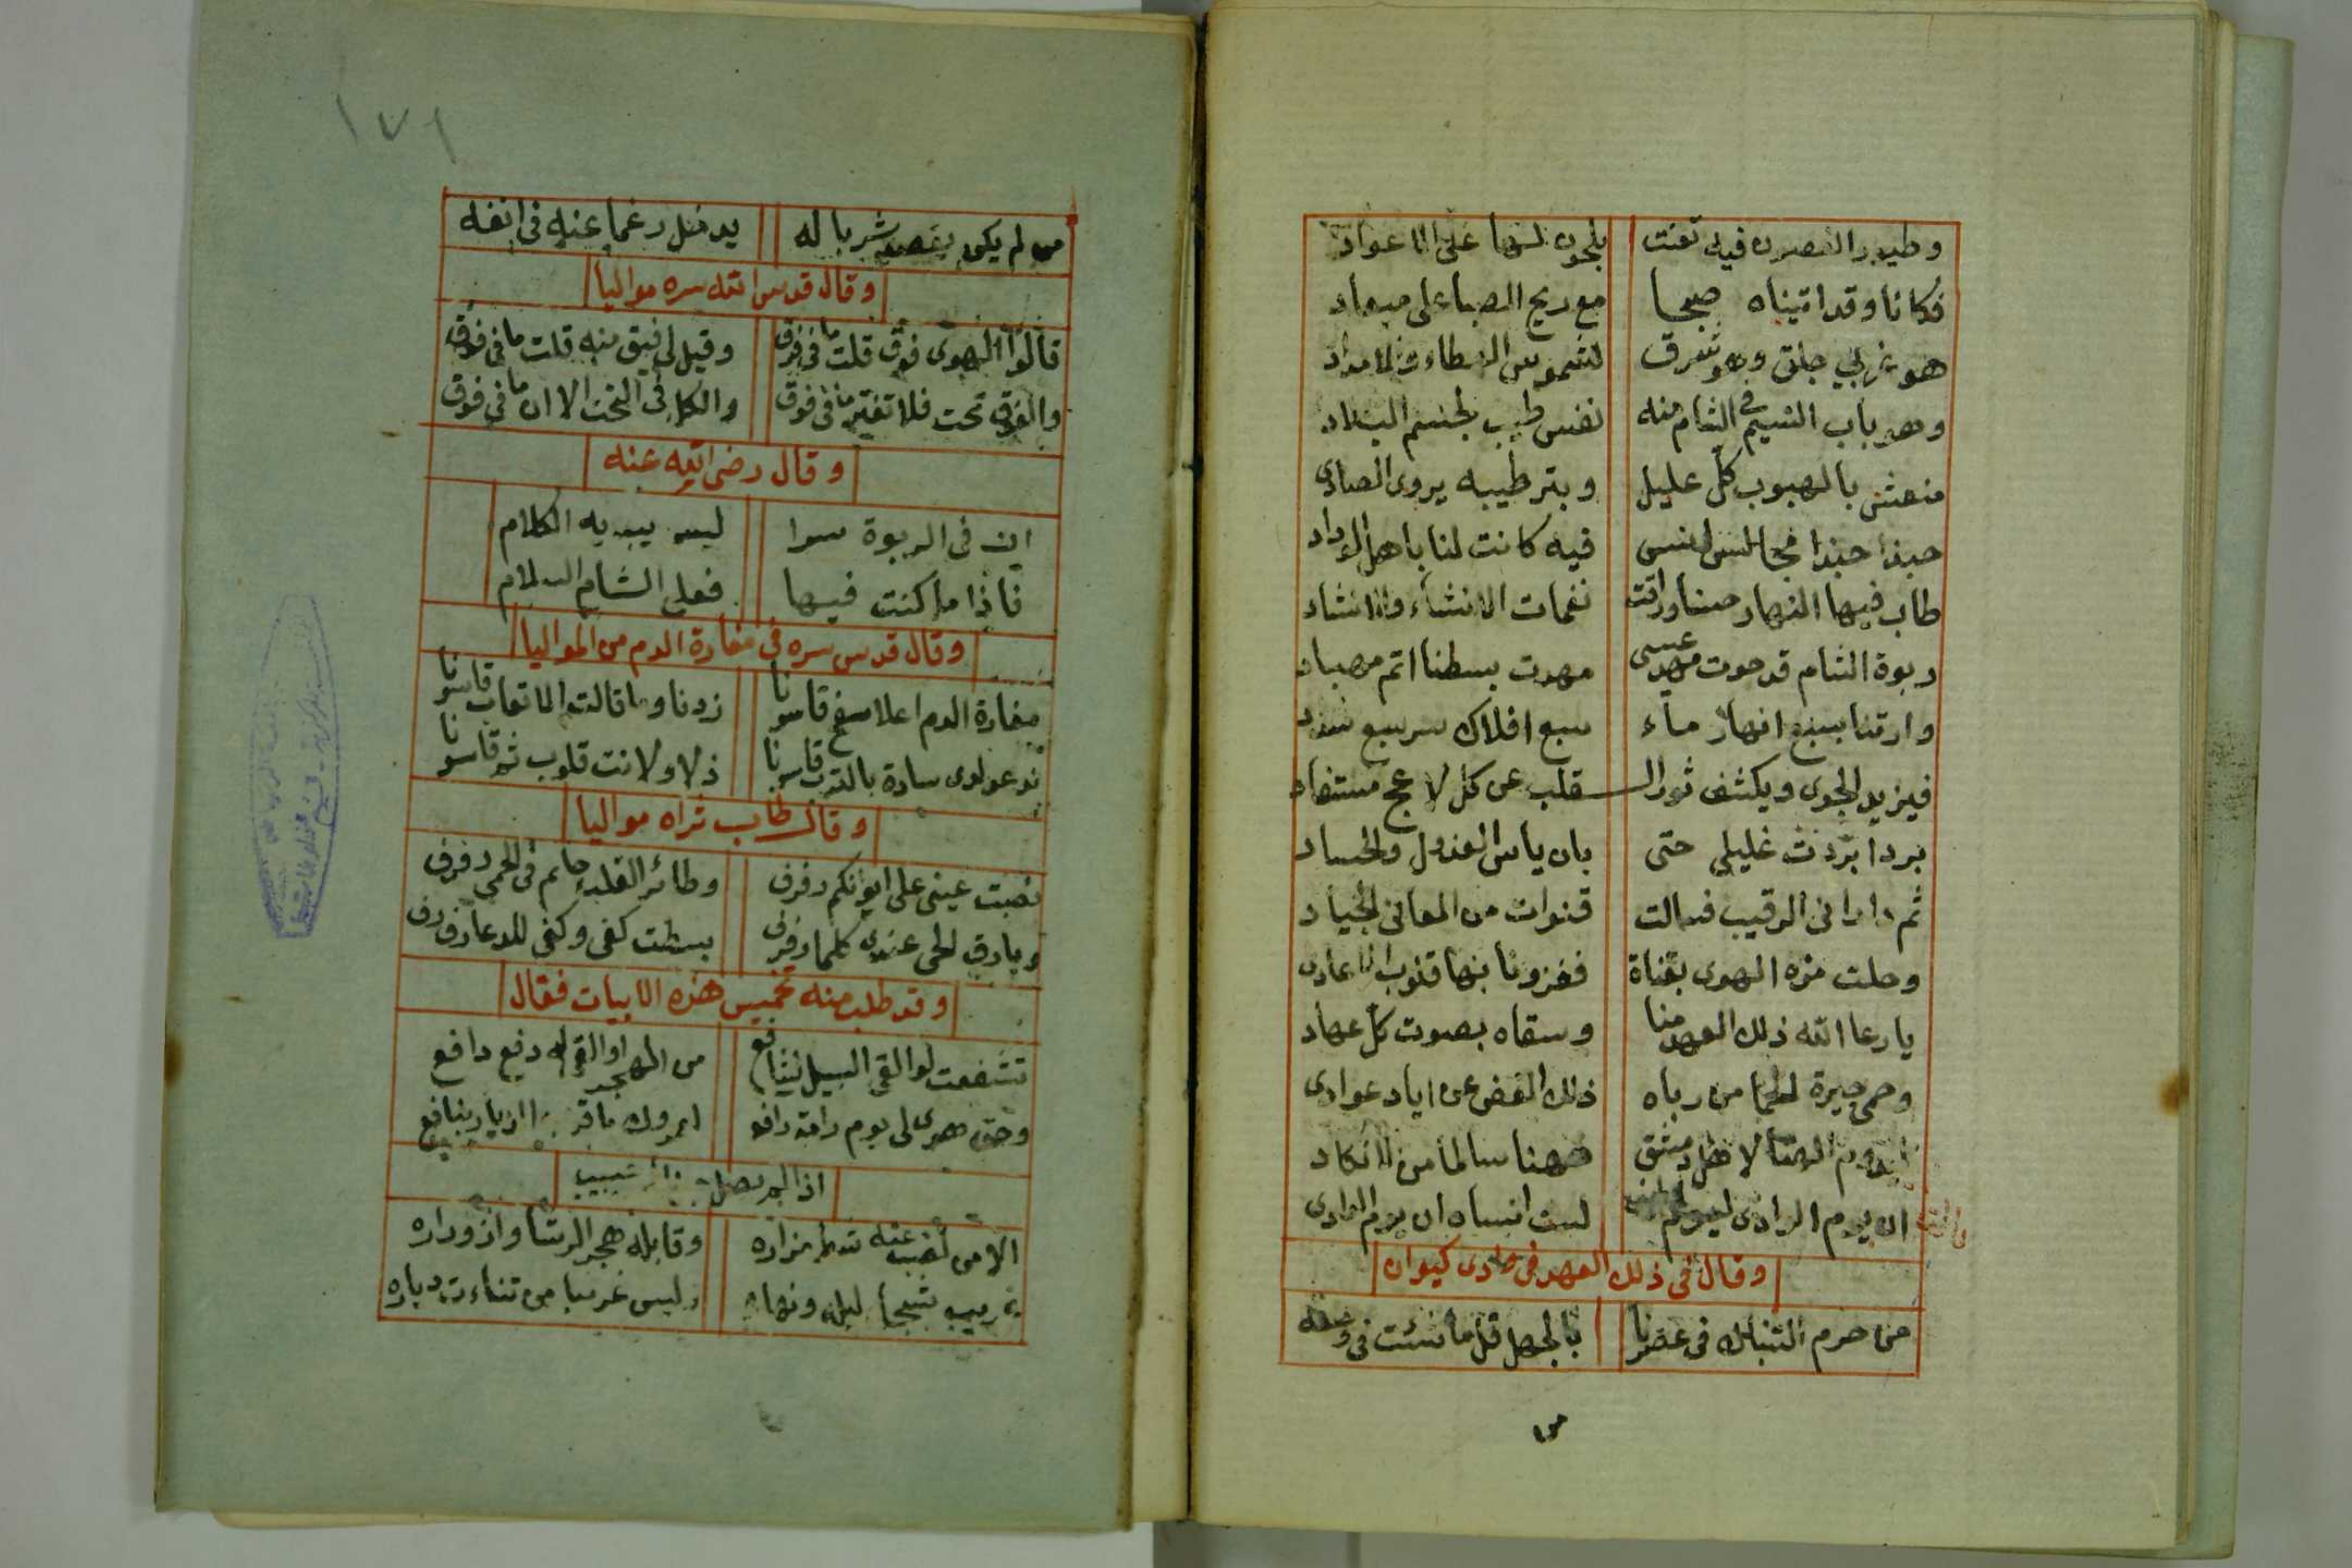 وطيور الغصون فيه تغنت بلحون لها على الاعواد
فكانا وقد اتيناه صبحا مع ريح الصبا على ميعاد
هو غربي جلق وهو شرق لشموس العطاء والامداد
وهو باب النسيم في الشام منه نفس طيب لجسم البلاد
منعش بالهبوب كل عليل وبترطيبه يروى الصادى
حبذا حبذا مجالس انس فيه كانت لنا باهل الوداد
طاب فيها النهار حسنا وراقت نغمات الانشاء والانشاد
ربوة الشام قد حوت مهد عيسى مهدت بسطنا اتم مهاد
وارتنا بسبع انهار ماء سبع افلاك سر سبع شداد
فيزيد الجوى ويكشف ثورا القلب عن كل لاعج مستفاد
بردا بردت غليلي حتى بان ياس العذول والحساد
ثم دارا فى الرقيب فسالت قنوات من المعانى الجياد
وحلت مزه الهوى بقناة فغزونا بها قلوب الاعادى
يا رعا الله ذلك العهد منا وسقاه بصوت كل عهاد
وحمى جيرة الحما من رباه ذلك الغض عن اياد عوادى
الهنا لاهل دمشق ههنا سالما من الانكاد
ان يوم الوادى ليوم لست انساه ان يوم الوادى
وقال فى ذلك العهد فى وادى كيوان
من حرم التنباك فى عصرنا بالجهل قل ما شئت فى وصفه
من
١٧٦
من لم يكن بغصبه شربا له يدخل رغما عنه فى انفه
وقال قدس الله سره مواليا
قالوا الهوى فوق قلت ما فى فوق وقيل لى فيق منه قلت ما فى فوق
والفوق تحت فلا تغتر ما فى فوق والكل فى التحت الا ان ما فى فوق
وقال رضى الله عنه
ان فى الربوة سرا ليس يبديه الكلام
فاذا ما كنت فيها فعلى الشام السلام
وقال قدس سره فى مغارة الدم من المواليا
مغارة الدم اعلا سفح قاسونا زدنا وما قالت الاتعاب قاسونا
سادة بالترب قاسونا ذلا ولا لانت قلوب ثم قاسونا
وقال طاب ثراه مواليا
نصبت عينى على ايوانكم رفرف وطائر القلب حايم فى الحمى رفرف
وبارق الحى عندى كلما رفرف بسطت كفى وكفى للدعا رفرف
وقد طلب منه تخميس هذه الابيات فقال
تشفعت لو القى السبيل لشافع من الهجر او القى له دفع دافع
وحق هوى لى يوم رامة رافع
الا من لصب عنه شط مزاره وقابله هجر الرشا وازوراره
غريب شجا ليله ونهاره وليس غريبا من تناءت دياره